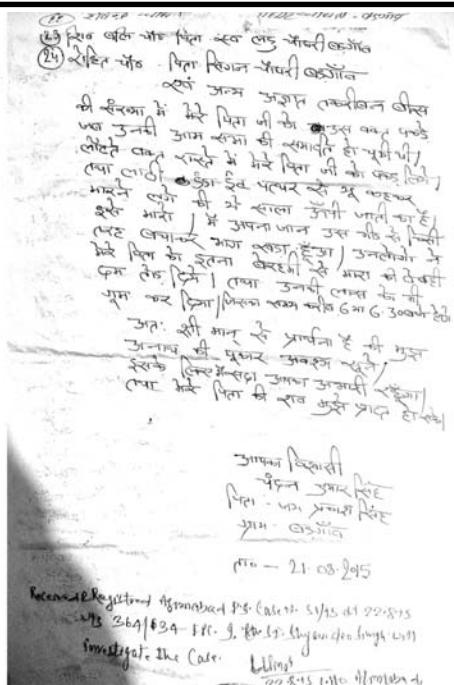 (23) शिव बलि चौ० पिता स्व० लड्डु चौधरी बड़गाँव
(24) रोहित चौ० पिता सिगन चौधरी बड़गाँव
एवं अन्य अज्ञात तकरीबन बीस
की संख्या में मेरे पिता जी को उस वक्त पकड़े
जब उनकी आम सभा की समाप्ति हो चुकी थी।
लौटते वक्त रास्ते में मेरे पिता जी को पकड़ लिये।
तथा लाठी डंडा ईंट पत्थर से यह कहकर
मारने लगे की ये साला ऊँची जाती का है।
इसे मारो। मैं अपना जान उस भीड़ से किसी
तरह बचाकर भाग खड़ा हुआ। उनलोगो ने
मेरे पिता को इतना बेरहमी से मारा की
दम तोड़ दिये। तथा उनकी लाश को भी
गुम कर दिया। जिसका समय करीब 6 या 6.30
अतः श्री मान् से प्रार्थना है की मुझ
अनाथ की पुकार अवश्य सुने।
इसके लिए मैं सदा आपका आभारी रहूँगा।
तथा मेरे पिता की शव मुझे प्राप्त हो सके।
आपका विश्वासी
चंदन कुमार सिंह
पिता - जय प्रकाश सिंह
ग्राम - बड़गाँव
ता० - 21.08.2015
Received & Registered P.S. Case No. 51/15 dt 22.8.15
u/s 364/34 IPC. S.I. Singh will
investigate the Case.
22.8.15